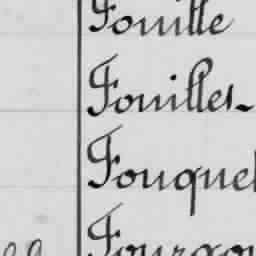 Fouille
Fouilles
Fouque
Fourgo